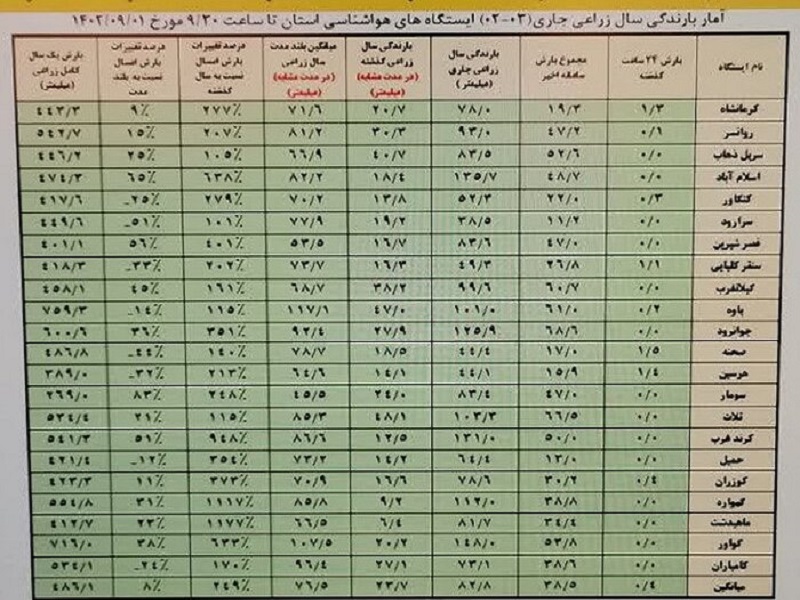 آمار بارندگی سال زراعی جاری(۰۳-۰۲) ایستگاه های هواشناسی استان تا ساعت ۹/۳۰ مورخ ۱۴۰۲/۰۹/۰۱
نام ایستگاه | بارش ۲۴ ساعت گذشته | مجموع بارش سامانه اخیر | بارندگی سال زراعی جاری (میلیمتر) | بارندگی سال زراعی گذشته (در مدت مشابه) (میلیمتر) | میانگین بلند مدت سال زراعی (در مدت مشابه) (میلیمتر) | درصد تغییرات بارش امسال نسبت به سال گذشته | درصد تغییرات بارش امسال نسبت به بلند مدت | بارش یک سال کامل زراعی (میلیمتر)
کرمانشاه ۱/۳ ۱۹/۳ ۷۸/۰ ۲۰/۷ ۷۱/۶ ۲۷۷٪ ۹٪ ۴۴۳/۳
روانسر ۰/۱ ۴۷/۲ ۹۳/۰ ۳۰/۳ ۸۱/۲ ۲۰۷٪ ۱۵٪ ۵۴۲/۷
سرپل ذهاب ۰/۰ ۵۲/۶ ۸۳/۵ ۴۰/۷ ۶۶/۹ ۱۰۵٪ ۲۵٪ ۴۴۶/۲
اسلام آباد ۰/۰ ۴۸/۷ ۱۳۵/۷ ۱۸/۴ ۸۲/۲ ۶۳۸٪ ۶۵٪ ۴۷۴/۳
کنگاور ۰/۳ ۲۲/۰ ۵۲/۳ ۱۳/۸ ۷۰/۲ ۲۷۹٪ -۲۵٪ ۴۱۷/۶
سرارود ۰/۰ ۱۱/۲ ۳۸/۵ ۱۹/۲ ۷۷/۹ ۱۰۱٪ -۵۱٪ ۴۴۹/۶
قصر شیرین ۰/۰ ۴۷/۰ ۸۳/۶ ۱۶/۷ ۵۳/۵ ۴۰۱٪ ۵۶٪ ۴۰۱/۱
سنقر کلیایی ۱/۱ ۲۶/۸ ۴۹/۳ ۱۶/۳ ۷۳/۷ ۲۰۲٪ -۳۳٪ ۴۱۸/۳
گیلانغرب ۰/۰ ۶۰/۷ ۹۹/۶ ۳۸/۲ ۶۸/۷ ۱۶۱٪ ۴۵٪ ۴۵۸/۱
پاوه ۰/۲ ۶۱/۰ ۱۰۱/۰ ۴۷/۰ ۱۱۷/۱ ۱۱۵٪ -۱۴٪ ۷۵۹/۳
جوانرود ۰/۰ ۶۸/۶ ۱۲۵/۹ ۲۷/۹ ۹۲/۴ ۳۵۱٪ ۳۶٪ ۶۰۰/۶
صحنه ۱/۵ ۱۷/۰ ۴۴/۴ ۱۸/۵ ۷۸/۷ ۱۴۰٪ -۴۴٪ ۴۸۶/۸
هرسین ۱/۴ ۱۵/۹ ۴۴/۱ ۱۴/۱ ۶۴/۶ ۲۱۳٪ -۳۲٪ ۳۸۹/۰
سومار ۰/۰ ۴۷/۰ ۸۳/۴ ۲۴/۰ ۴۵/۵ ۲۴۸٪ ۸۳٪ ۲۶۹/۰
ثلاث ۰/۰ ۶۶/۵ ۱۰۳/۳ ۴۸/۱ ۸۵/۳ ۱۱۵٪ ۲۱٪ ۵۳۴/۴
کرند غرب ۰/۰ ۵۰/۰ ۱۳۱/۰ ۱۲/۵ ۸۶/۶ ۹۴۸٪ ۵۱٪ ۵۴۱/۳
حمیل ۰/۰ ۱۳/۰ ۶۴/۴ ۱۴/۲ ۷۳/۲ ۳۵۴٪ -۱۲٪ ۴۲۱/۴
کوزران ۰/۴ ۳۰/۲ ۷۸/۶ ۱۶/۶ ۷۰/۹ ۳۷۳٪ ۱۱٪ ۴۲۳/۳
گهواره ۰/۰ ۳۸/۸ ۱۱۲/۰ ۹/۲ ۸۵/۸ ۱۱۱۷٪ ۳۱٪ ۵۵۴/۸
ماهیدشت ۰/۰ ۳۴/۴ ۸۱/۷ ۶/۴ ۶۶/۵ ۱۱۷۷٪ ۲۳٪ ۴۱۲/۷
گواور ۰/۰ ۵۳/۸ ۱۴۸/۰ ۲۰/۲ ۱۰۷/۵ ۶۳۳٪ ۳۸٪ ۷۱۶/۰
کامیاران ۰/۰ ۳۸/۶ ۷۳/۱ ۲۷/۱ ۹۶/۴ ۱۷۰٪ -۲۴٪ ۵۳۴/۱
میانگین ۰/۴ ۳۸/۵ ۸۲/۸ ۲۳/۷ ۷۶/۵ ۲۴۹٪ ۸٪ ۴۸۶/۱